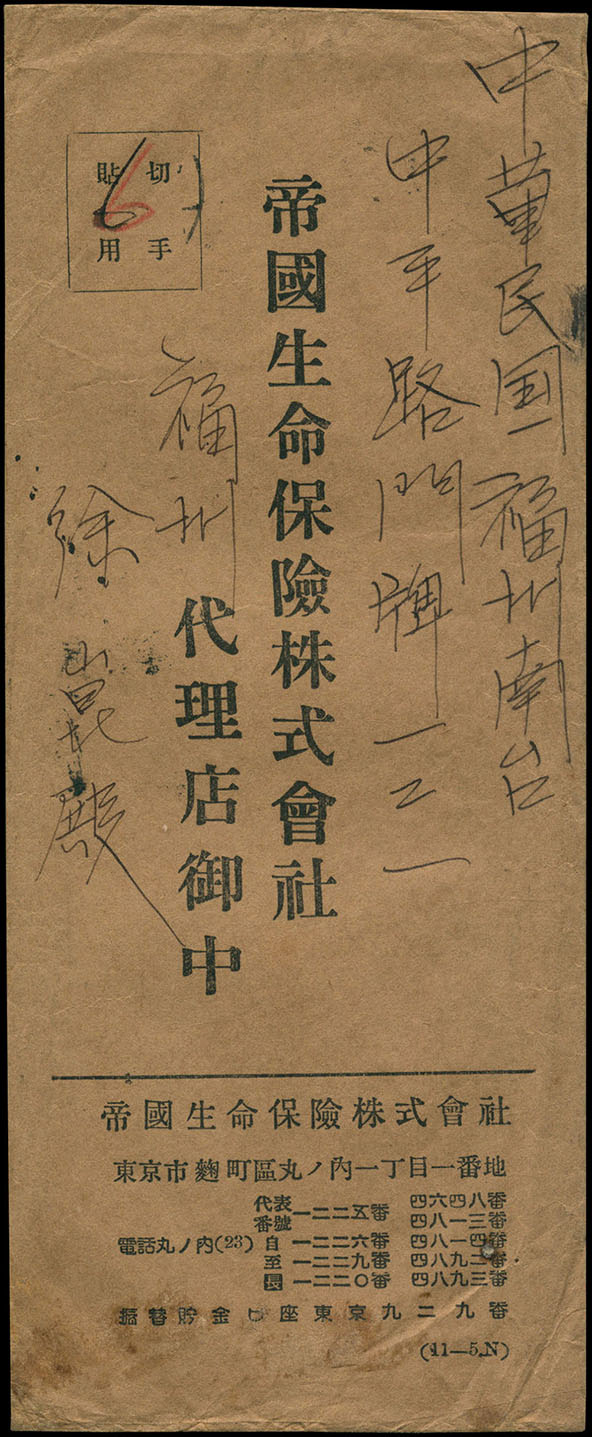 中華民国福州南台
中平路門牌一二一
帝國生命保險株式會社
福州
代理店御中
徐崑殿
切手
貼用
6
帝國生命保險株式會社
東京市麴町區丸ノ內一丁目一番地
電話丸ノ內(23)
代表番號 一二二五番 四六四八番
四八一三番
自 一二二六番 四八一四番
至 一二二九番 四八九二番
長 一二二〇番 四八九三番
振替貯金口座東京九二九番
(11—5.N)